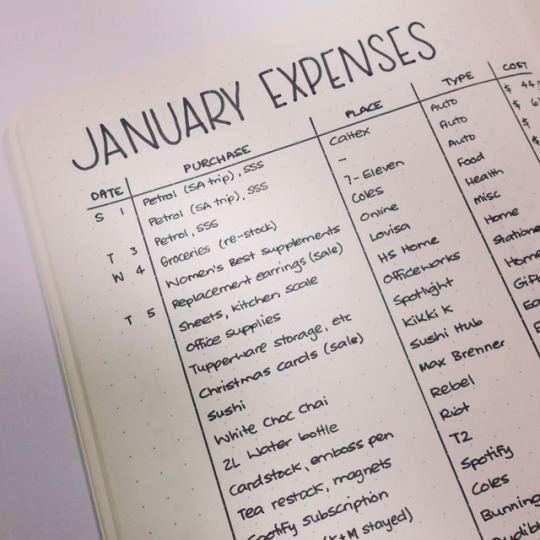 JANUARY EXPENSES
DATE PURCHASE PLACE TYPE COST
S 1 Petrol (SA trip), SSS Caltex Auto $ 44
Petrol (SA trip), SSS - Auto $ 6
T 3 Petrol, SSS 7-Eleven Auto $
W 4 Groceries (re-stock) Coles Food
Women's Best Supplements Online Health
T 5 Replacement earrings (sale) Lovisa Misc
Sheets, kitchen scale HS Home Home
Office supplies Officeworks Statione
Tupperware storage, etc Spotlight Home
Christmas cards (sale) Kikki K Gift
Sushi Sushi Hub
White Choc Chai Max Brenner
2L Water bottle Rebel
Cardstock, emboss pen Riot
Tea restock, magnets T2
Spotify subscription Spotify
(K+M stayed) Coles
Bunning